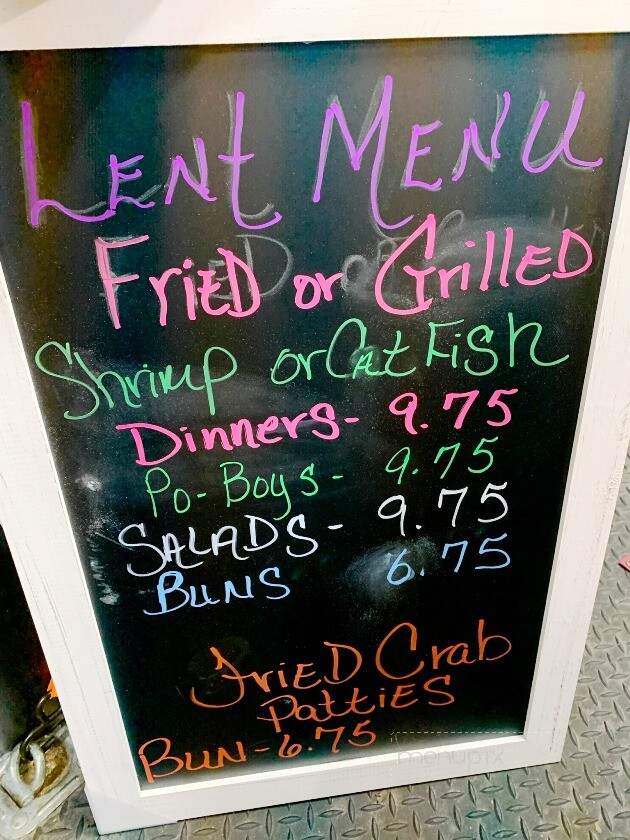 LENt MENU
FriED or GrillED
Shrimp or Cat Fish
Dinners- 9.75
Po-Boys- 9.75
SALADS- 9.75
BUNS 6.75
FriED Crab
PattiES
BUN-6.75
menupix